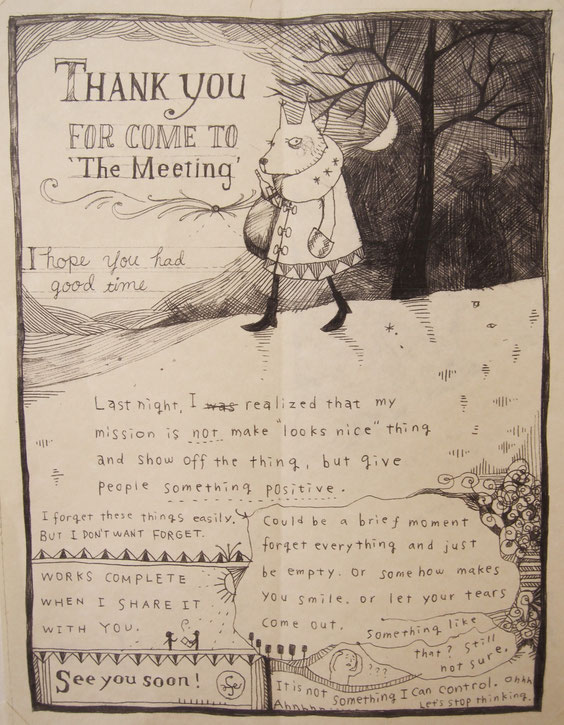 THANK YOU
FOR COME TO
'The Meeting'
I hope you had
good time
Last night, I was realized that my
mission is not make "looks nice" thing
and show off the thing, but give
people something positive.
I forget these things easily.
BUT I DON'T WANT FORGET.
WORKS COMPLETE
WHEN I SHARE IT
WITH YOU.
See you soon!
Could be a brief moment
forget everything and just
be empty. Or somehow makes
you smile, or let your tears
come out. Something like
that? Still
not sure.
???
It is not something I can control. Ohhhh
Ahhhhhh Let's stop thinking.